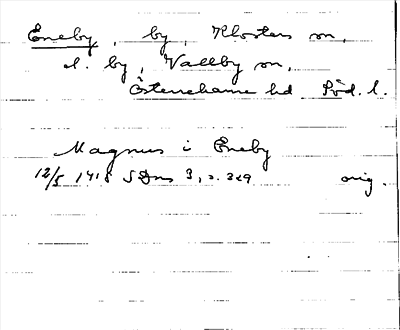 Eneby, by, Klosters sn,
t. by, Vallby sn,
Österrekarne hd Söd. l.
Magnus i Eneby
12/5 1418 SDns 3, s. 329 orig.